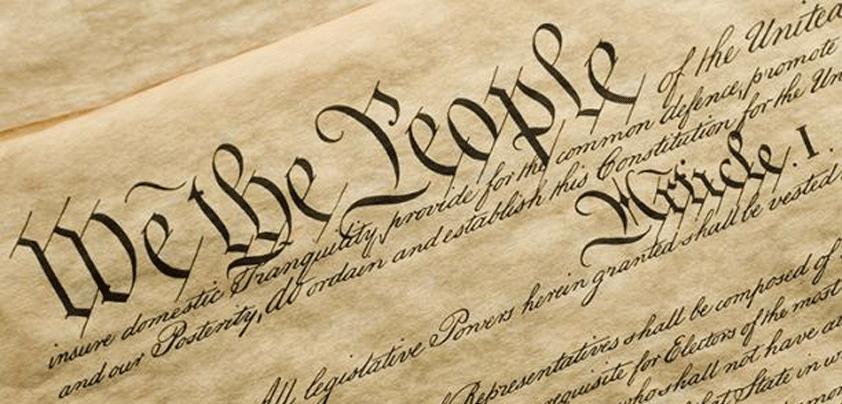 We the People of the United
insure domestic Tranquility, provide for the common defence, promote
and our Posterity, do ordain and establish this Constitution for the Un
Article. I.
All legislative Powers herein granted shall be vested
Representatives shall be composed of
requisite for Electors of the most
who shall not have at
State in w